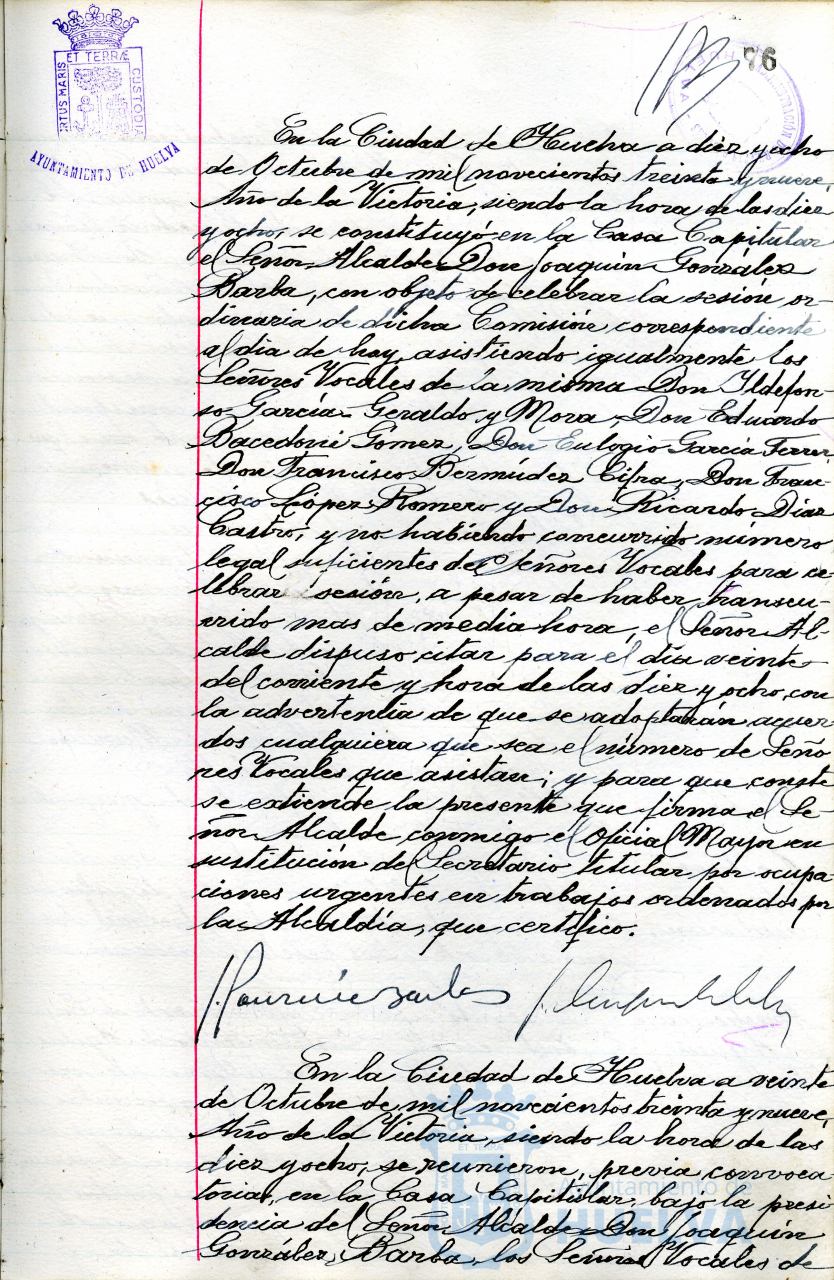 76
ET TERRÆ
PORTUS MARIS
CUSTODIA
AYUNTAMIENTO DE HUELVA
En la Ciudad de Huelva a diez y ocho
de Octubre de mil novecientos treinta y nueve,
Año de la Victoria, siendo la hora de las diez
y ocho, se constituyó en la Casa Capitular
el Señor Alcalde Don Joaquín González
Barba, con objeto de celebrar la sesión or-
dinaria de dicha Comisión correspondiente
al día de hoy, asistiendo igualmente los
Señores Vocales de la misma Don Ildefon-
so García-Geraldo y Mora, Don Eduardo
Bacedoni Gómez, Don Eulogio García Ferrer,
Don Francisco Bermúdez Cifra, Don Fran-
cisco López Romero y Don Ricardo Díaz
Castro, y no habiendo concurrido número
legal suficientes de Señores Vocales para ce-
lebrar sesión, a pesar de haber transcu-
rrido mas de media hora, el Señor Al-
calde dispuso citar para el día veinte
del corriente y hora de las diez y ocho, con
la advertencia de que se adoptarán acuer
dos cualquiera que sea el número de Seño
res Vocales que asistan; y para que conste
se extiende la presente que firma el Se-
ñor Alcalde conmigo el Oficial Mayor en
sustitución del Secretario titular por ocupa-
ciones urgentes en trabajos ordenados por
la Alcaldía, que certifico.
En la Ciudad de Huelva a veinte
de Octubre de mil novecientos treinta y nueve,
Año de la Victoria, siendo la hora de las
diez y ocho, se reunieron, previa convoca
toria, en la Casa Capitular bajo la presi
dencia del Señor Alcalde Don Joaquín
González Barba, los Señores Vocales de
Ayuntamiento de
HUELVA